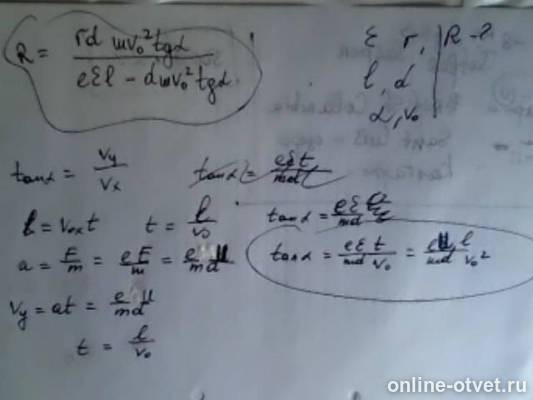 R = rd mv₀² tgα / (eƐl − dmv₀² tgα)
Ɛ r, | R - ?
l, d
α, v₀
tanα = Vy / Vx
tanα = eƐt / md
l = v₀ₓt t = l / v₀
tanα = eƐ / md
a = F/m = eE/m = e U / m d
tanα = eƐ t / md v₀ = e U l / md v₀²
Vy = at = e U / m d
t = l / v₀
online-otvet.ru